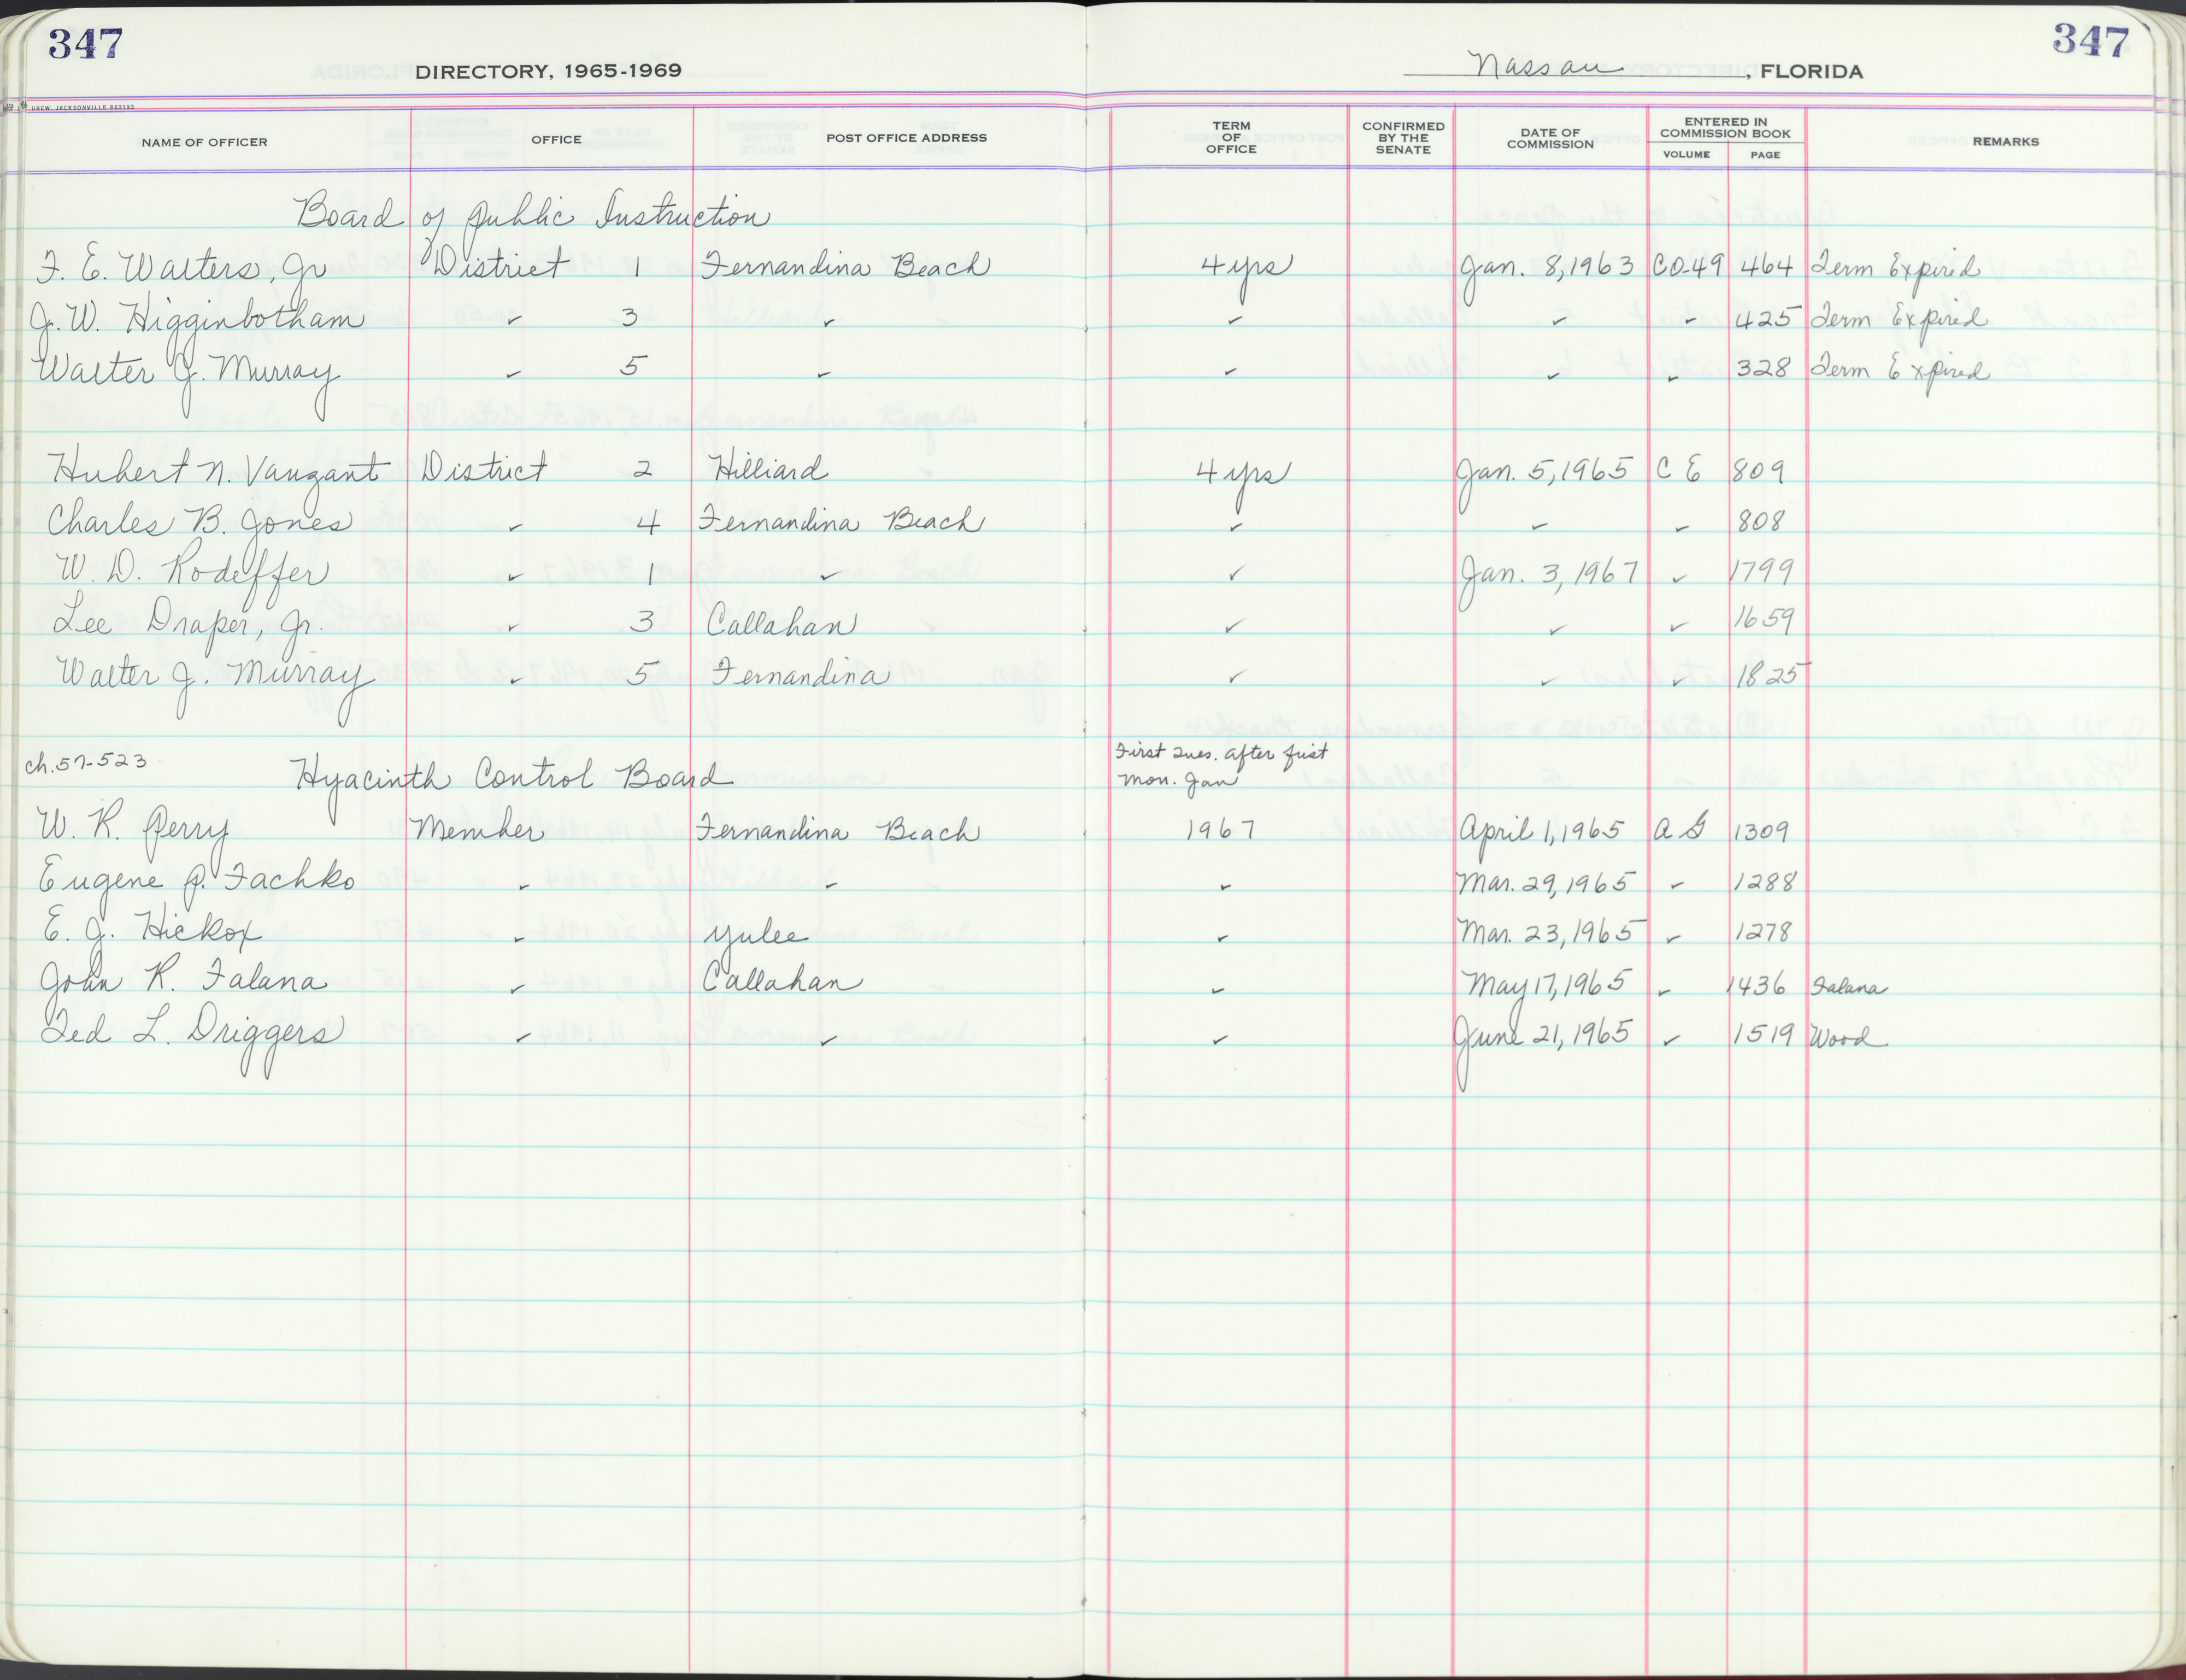 347
347
DIRECTORY, 1965-1969
Nassau, FLORIDA
DREW, JACKSONVILLE 863193
NAME OF OFFICER OFFICE POST OFFICE ADDRESS TERM OF OFFICE CONFIRMED BY THE SENATE DATE OF COMMISSION ENTERED IN COMMISSION BOOK VOLUME PAGE REMARKS
Board of Public Instruction
F. E. Walters, Jr District 1 Fernandina Beach 4 yrs Jan. 8, 1963 CO-49 464 Term Expired
J. W. Higginbotham ✓ 3 ✓ ✓ ✓ ✓ 425 Term Expired
Walter J. Murray ✓ 5 ✓ ✓ ✓ ✓ 328 Term Expired
Hubert N. Vanzant District 2 Hilliard 4 yrs Jan. 5, 1965 C E 809
Charles B. Jones ✓ 4 Fernandina Beach ✓ ✓ ✓ 808
W. D. Rodeffer ✓ 1 ✓ ✓ Jan. 3, 1967 ✓ 1799
Lee Draper, Jr. ✓ 3 Callahan ✓ ✓ ✓ 1659
Walter J. Murray ✓ 5 Fernandina ✓ ✓ ✓ 1825
Ch. 57-523 Hyacinth Control Board First Tues. after first
Mon. Jan
W. R. Perry Member Fernandina Beach 1967 April 1, 1965 A G 1309
Eugene P. Fachko ✓ ✓ ✓ Mar. 29, 1965 ✓ 1288
E. J. Hickox ✓ Yulee ✓ Mar. 23, 1965 ✓ 1278
John R. Falana ✓ Callahan ✓ May 17, 1965 ✓ 1436 Falana
Ted L. Driggers ✓ ✓ ✓ June 21, 1965 ✓ 1519 Wood